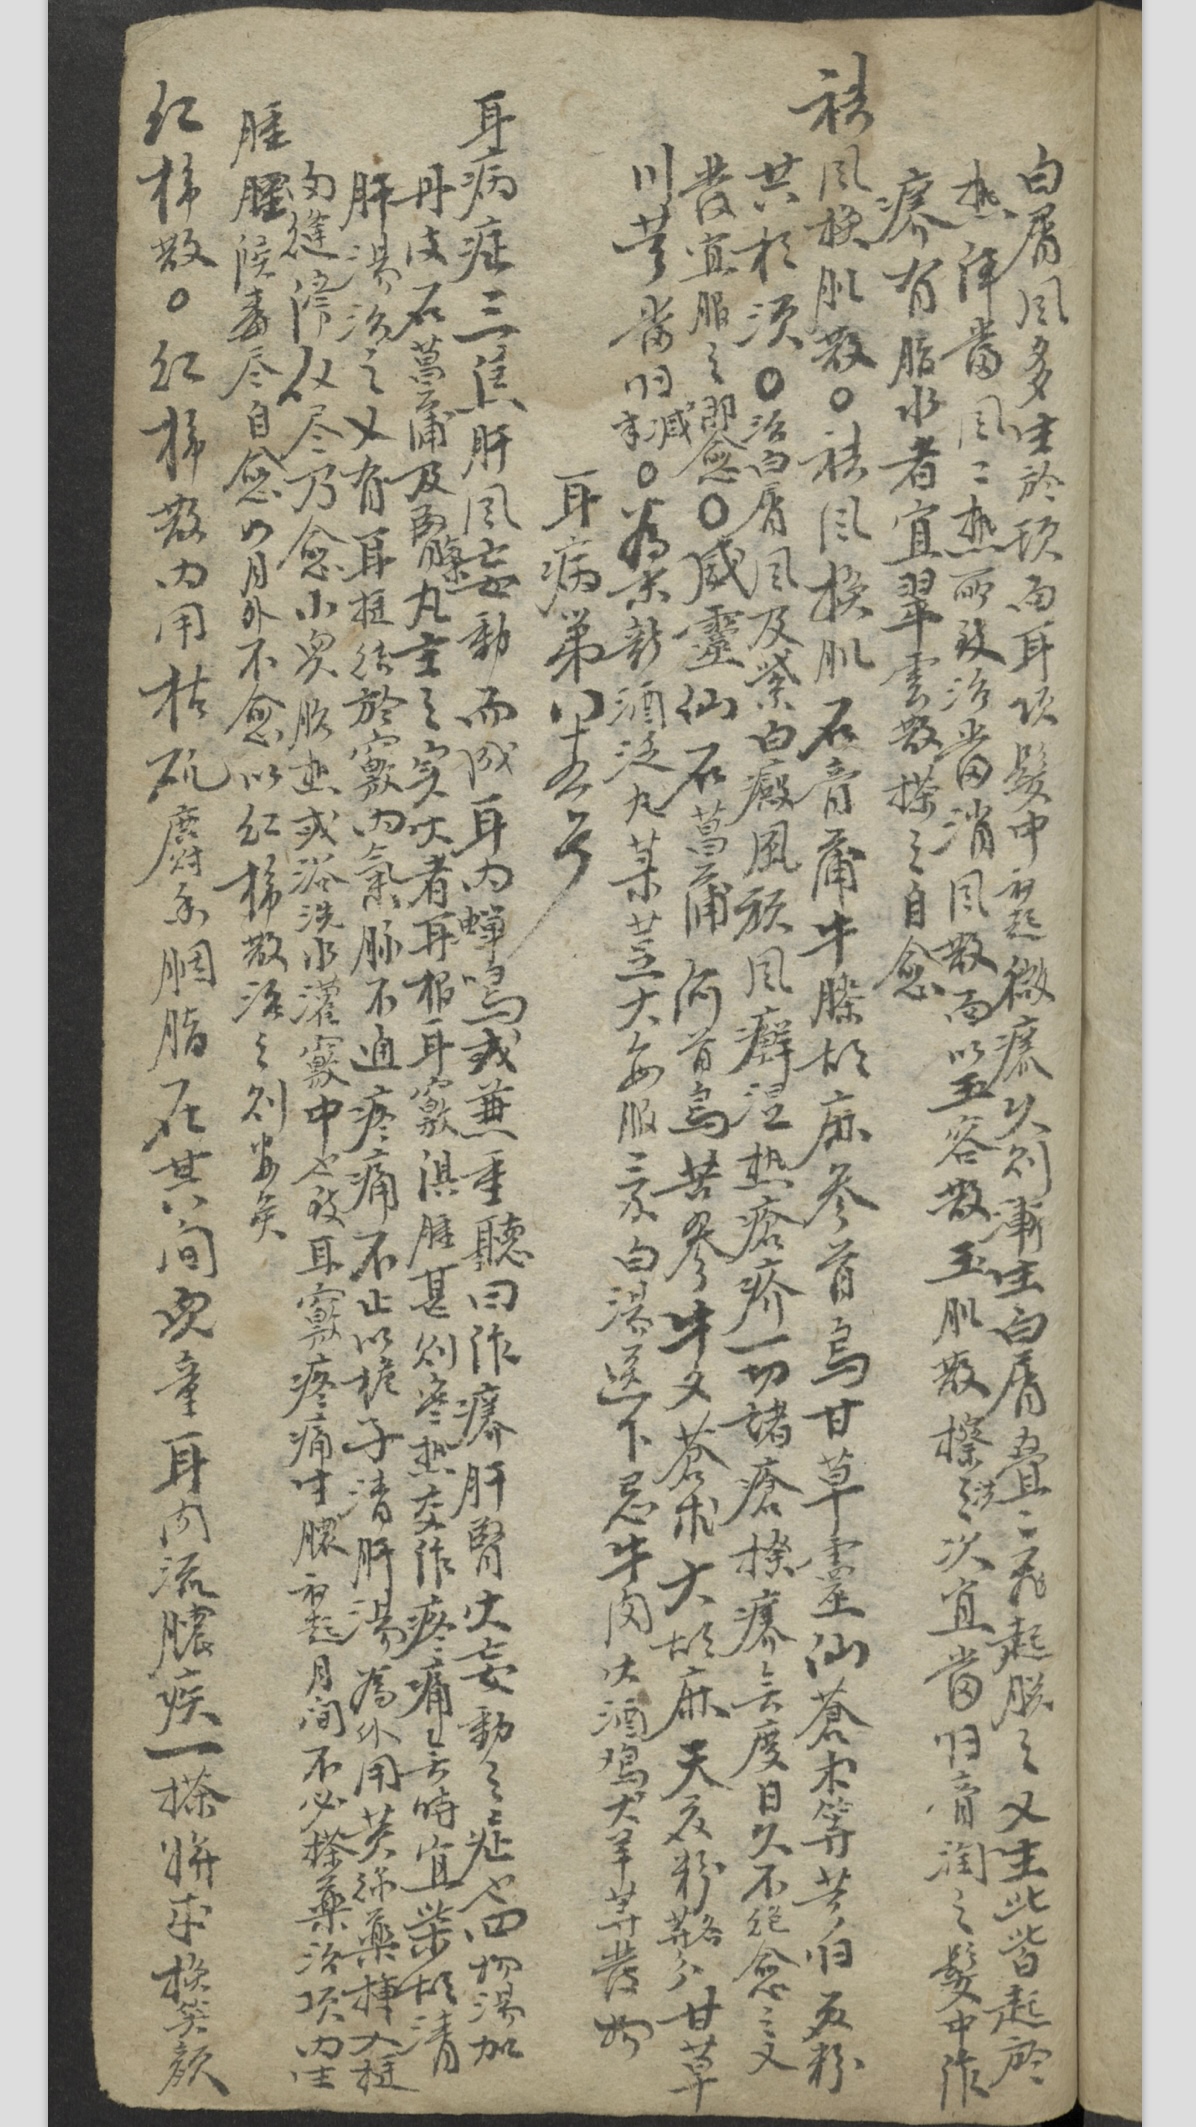 白屑風多生於頭面耳項髮中初起微癢久則漸生白屑疊二飛起脫之又生此皆起於
热体當風二热所致治當消風散面以玉容散玉肌散擦之洗次宜當归膏潤之髮中作
癢有脂水者宜翠雲散搽之自愈
祛風换肌散○祛風换肌石膏蒲牛膝胡麻参首烏甘草靈仙蒼朮等芎归灰粉
共相须○治白屑風及紫白癜風頑風癣湿热瘡疥一切諸瘡搔癢無度日久不絕愈之又
發宜服之即愈○威靈仙石菖蒲何首烏苦參牛夕蒼朮大胡麻天灰粉各等分甘草
川芎當归减半○為末新酒泛丸菉荳大每服三分白湯送下忌牛肉火酒鳴犬羊等發物
耳病第八十五号
耳病症三焦肝風妄動而成耳内蝉鳴或兼重聽曰作癢肝腎火妄動之症也四物湯加
丹皮石菖蒲及腎腺丸主之实火者耳根耳竅俱腫甚則寒热交作疼痛無時宜柴胡清
肝湯治之又有耳挺结於竅内氣脉不通疼痛不止以梔子清肝湯為外用黄線藥插入挺
肉縫滯化尽乃愈小兒胎热或浴洗水灌竅中也致耳竅疼痛甘膿初起月间不必搽藥治項内生
腫腫候毒尽自愈如月外不愈以红棉散治之則安矣
红棉散○红棉散内用枯矾麝香胭脂在其间兒童耳内流膿疾一搽將来换笑颜